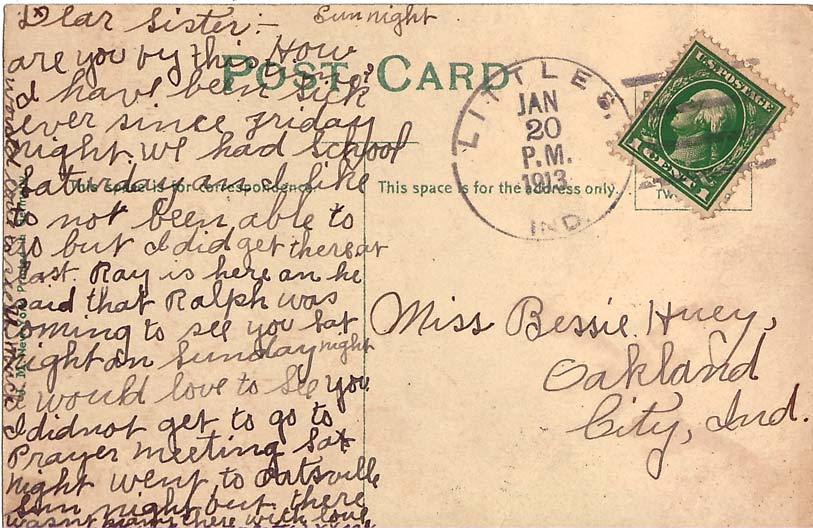 Sun night
Dear Sister:-
are you by this. How
I have been sick
ever since friday
night. we had School
Saturday and I like
to not been able to
go but I did get there at
last. Ray is here an he
said that Ralph was
coming to see you Sat
night an Sunday night
I would love to see you
I did not get to go to
Prayer meeting Sat
night went to Oatsville
Sun night but there
wasnt many there with love
POST CARD
This space is for correspondence.
This space is for the address only.
LITTLES,
JAN
20
P.M.
1913
IND.
U.S. POSTAGE
1 CENT 1
Miss Bessie Huey,
Oakland
City, Ind.